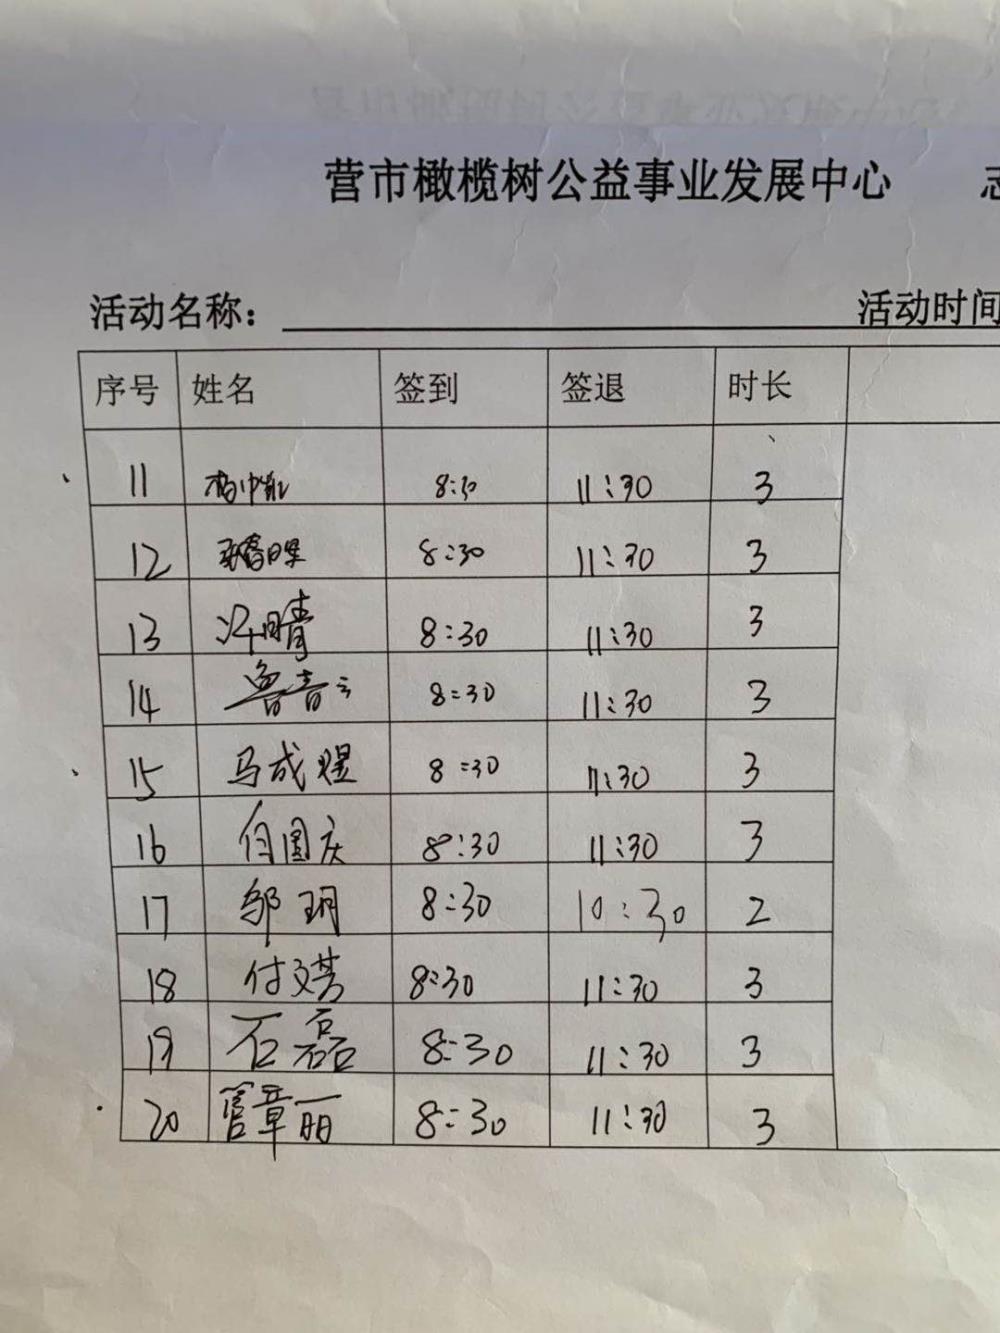 营市橄榄树公益事业发展中心 志
活动名称： 活动时间
序号 姓名 签到 签退 时长
11 8:30 11:30 3
12 8:30 11:30 3
13 江晴 8:30 11:30 3
14 鲁青云 8:30 11:30 3
15 马成煜 8:30 11:30 3
16 国庆 8:30 11:30 3
17 邹玥 8:30 10:30 2
18 付文芳 8:30 11:30 3
19 石磊 8:30 11:30 3
20 管章丽 8:30 11:30 3